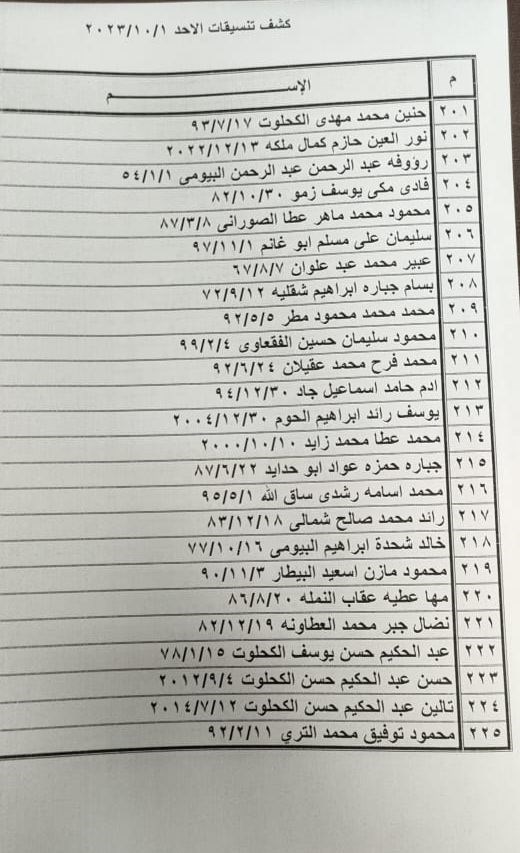 كشف تنسيقات الاحد ٢٠٢٣/١٠/١
م الإســـــــــــــــــم
٢٠١ حنين محمد مهدى الكحلوت ٩٣/٧/١٧
٢٠٢ نور العين حازم كمال ملكه ٢٠٢٢/١٢/١٣
٢٠٣ رؤوفه عبد الرحمن عبد الرحمن البيومى ٥٤/١/١
٢٠٤ فادى مكى يوسف زمو ٨٢/١٠/٣٠
٢٠٥ محمود محمد ماهر عطا الصورانى ٨٧/٣/٨
٢٠٦ سليمان على مسلم ابو غانم ٩٧/١١/١
٢٠٧ عبير محمد عبد علوان ٦٧/٨/٧
٢٠٨ بسام جباره ابراهيم شقليه ٧٢/٩/١٢
٢٠٩ محمد محمد محمود مطر ٩٢/٥/٥
٢١٠ محمود سليمان حسين الفقعاوى ٩٩/٢/٤
٢١١ محمد فرح محمد عقيلان ٩٢/٦/٢٤
٢١٢ ادم حامد اسماعيل جاد ٩٤/١٢/٣٠
٢١٣ يوسف رائد ابراهيم الحوم ٢٠٠٤/١٢/٣٠
٢١٤ محمد عطا محمد زايد ٢٠٠٠/١٠/١٠
٢١٥ جباره حمزه عواد ابو حدايد ٨٧/٦/٢٢
٢١٦ محمد اسامه رشدى ساق الله ٩٥/٥/١
٢١٧ رائد محمد صالح شمالى ٨٣/١٢/١٨
٢١٨ خالد شحدة ابراهيم البيومى ٧٧/١٠/١٦
٢١٩ محمود مازن اسعيد البيطار ٩٠/١١/٣
٢٢٠ مها عطيه عقاب النمله ٨٦/٨/٢٠
٢٢١ نضال جبر محمد العطاونه ٨٢/١٢/١٩
٢٢٢ عبد الحكيم حسن يوسف الكحلوت ٧٨/١/١٥
٢٢٣ حسن عبد الحكيم حسن الكحلوت ٢٠١٢/٩/٤
٢٢٤ تالين عبد الحكيم حسن الكحلوت ٢٠١٤/٧/١٢
٢٢٥ محمود توفيق محمد التري ٩٢/٢/١١